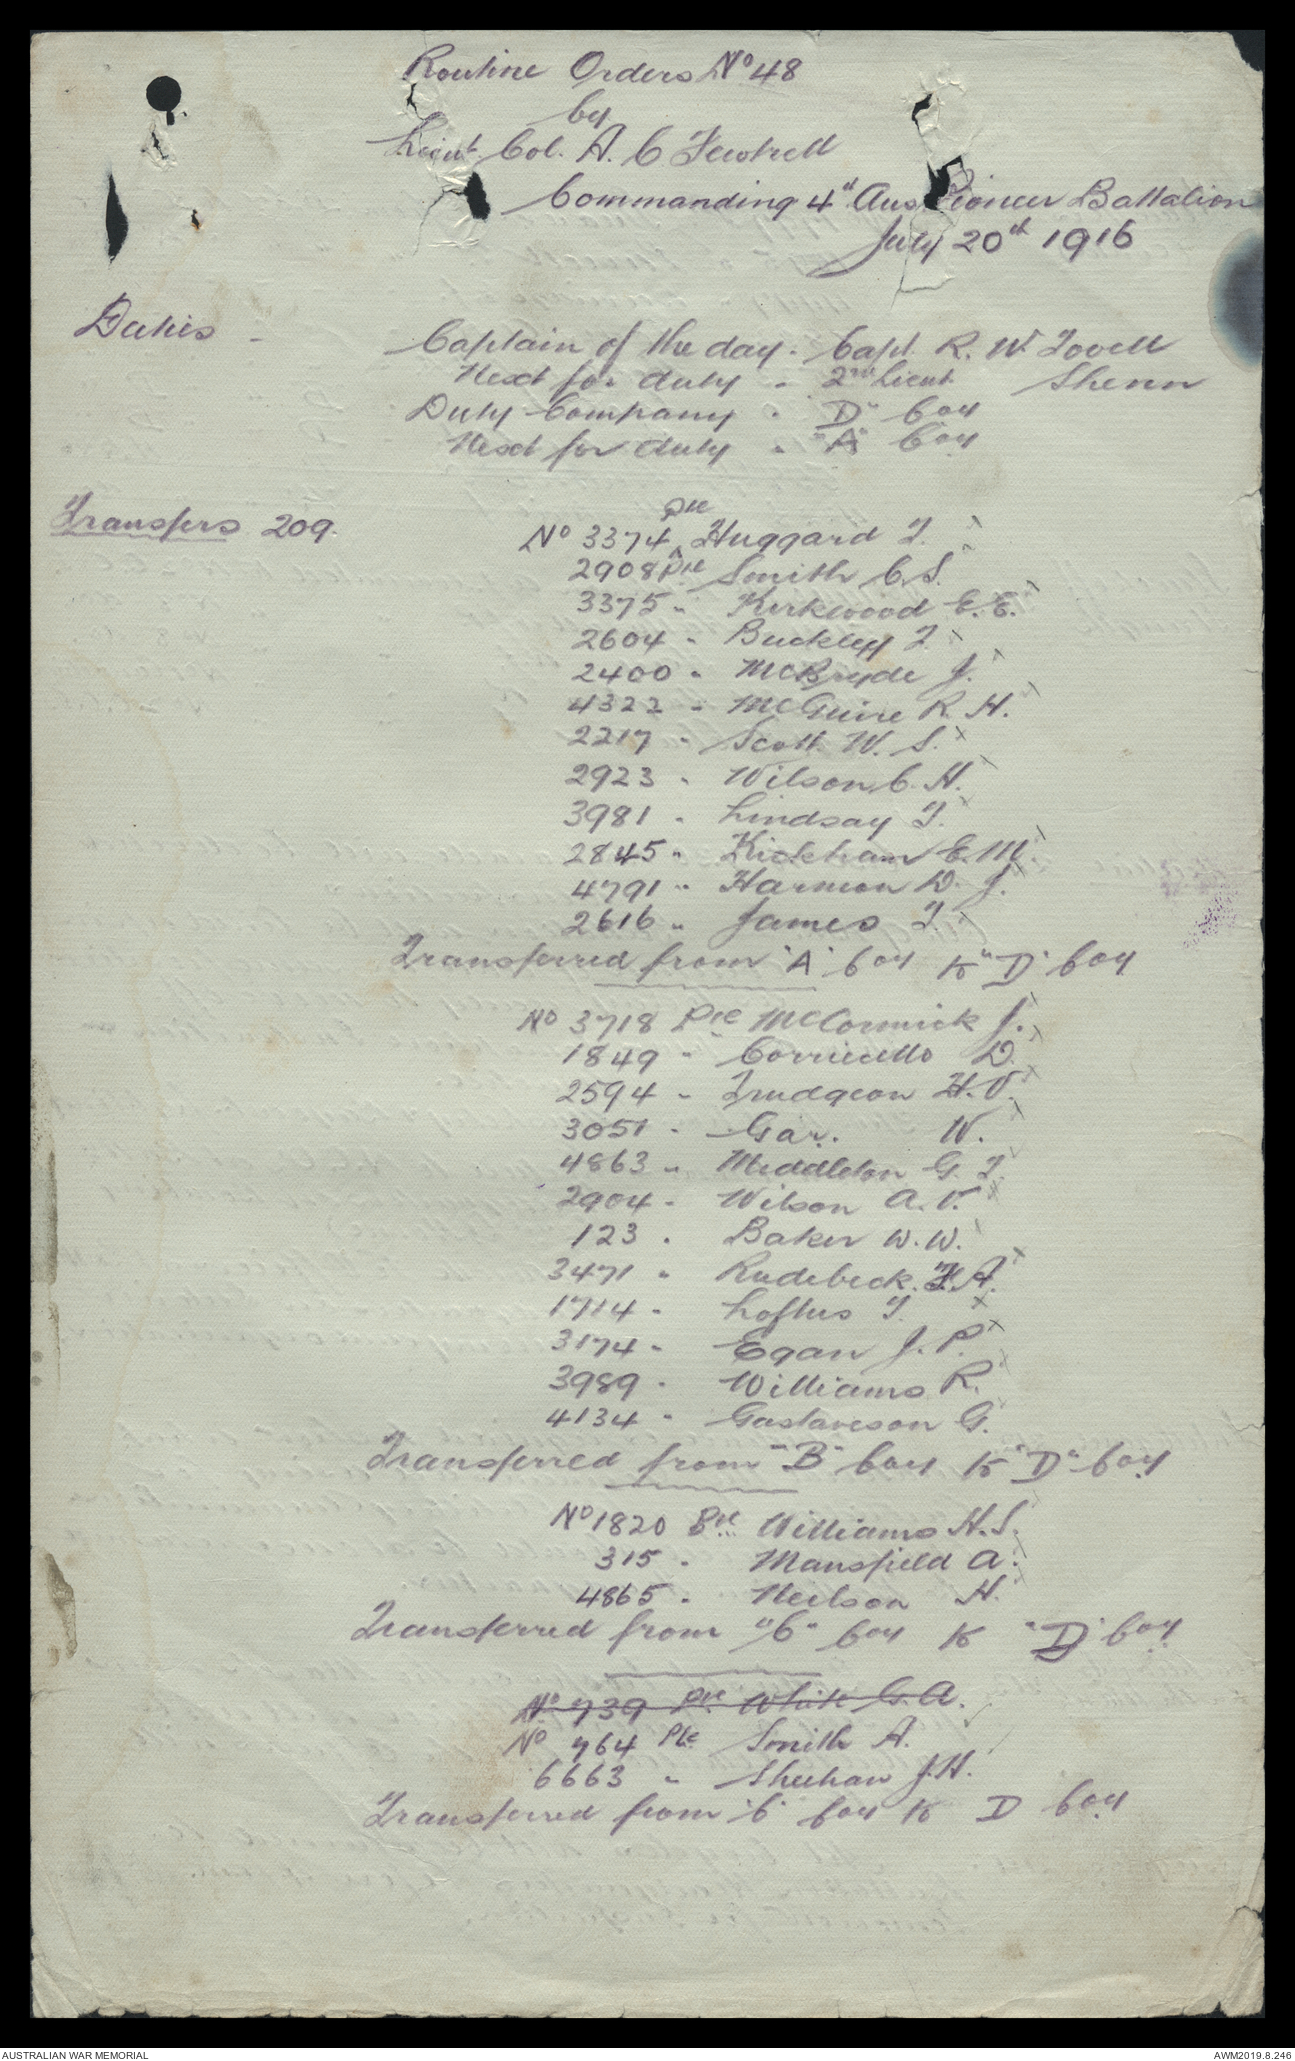 Routine Orders No 48
by
Lieut. Col. A. C Fewtrell
Commanding 4th Aus Pioneer Battalion
July 20th 1916
Duties - Captain of the day. Capt. R. W. Lovell
Next for duty - 2nd Lieut. Shenn
Duty Company - "D" Coy
Next for duty - "A" Coy
Transfers 209. No 3374 Pte Huggard T.
2908 Pte Smith C. S.
3375 " Kirkwood E. E.
2604 " Buckley T.
2400 " McBryde J.
4322 " McGuire R. H.
2217 " Scott W. S.
2923 " Wilson C. H.
3981 " Lindsay T.
2845 " Kickham E. M.
4791 " Harmon D. J.
2616 " James T.
Transferred from "A" Coy to "D" Coy
No 3718 Pte McCormick J.
1849 " Corricello D.
2594 " Trudgeon H. V.
3051 " Gar. W.
4863 " Middleton G. T.
2904 " Wilson A. V.
123 " Baker W. W.
3471 " Rudebeck. F. A.
1714 " Loftus T.
3174 " Egan J. P.
3989 " Williams R.
4134 " Gustaveson G.
Transferred from "B" Coy to "D" Coy
No 1820 Pte Williams H. S.
315 " Mansfield A.
4865 " Neilson H.
Transferred from "C" Coy to "D" Coy
No 739 Pte White G. A.
No 764 Pte Smith A.
6663 " Sheehan J. H.
Transferred from "C" Coy to D Coy
AUSTRALIAN WAR MEMORIAL
AWM2019.8.246